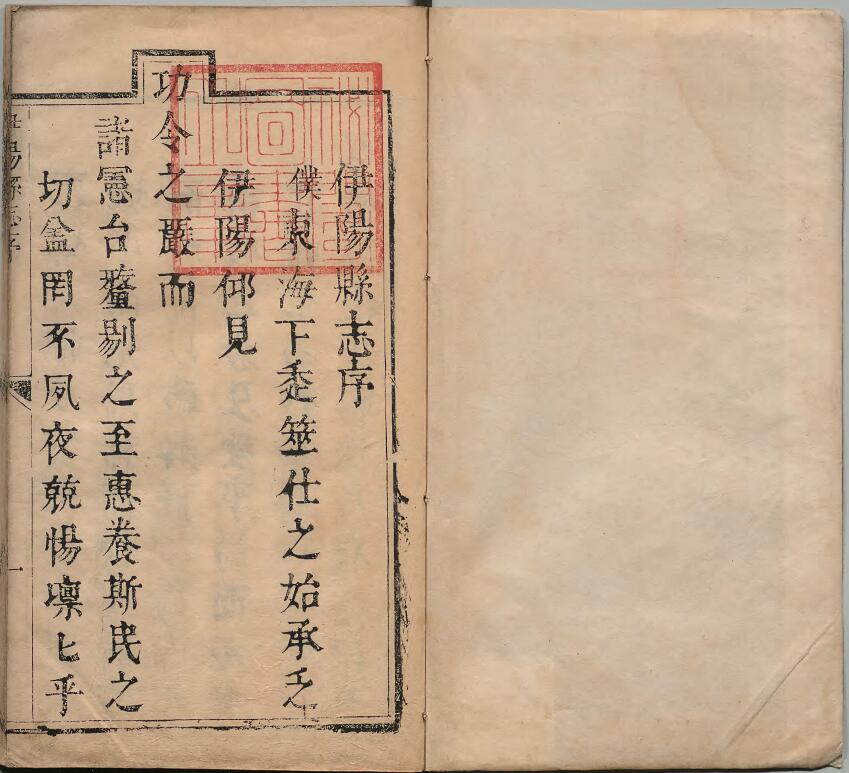 伊陽縣志序
僕東海下走筮仕之始承乏
伊陽仰見
功令之嚴而
諸憲台釐剔之至惠養斯民之
切益罔不夙夜兢惕凜匕乎
伊陽縣志序
一